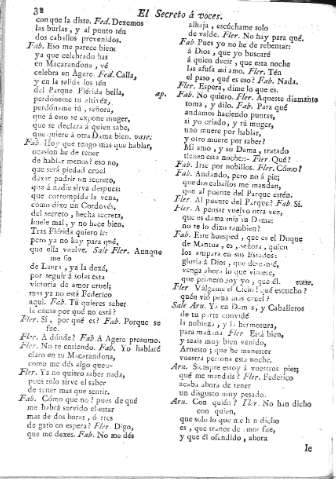 32
El Secreto á voces.
con que la diste. Fed. Dexemos
las burlas, y al punto tén
dos caballos prevenidos.
Fab. Eso me parece bien
ya que celebrado has
en Macarandona, y él
celebra en Agere. Fed. Calla,
y en la sellos los tén
del Parque Flérida bella,
perdóneme tu altivéz,
perdóname tú, señora,
que á esto se expone muger,
que se declara á quien sabe,
que quiere á otra Dama bien. vase.
Fab. Hoy que tengo mas que hablar,
ocasion he de tener
de hablar menos? eso no,
que será piedad cruel
dexar pudrir un secreto,
que á nadie sirva despues
que corrompida la vena,
como dixo un Cordovés,
del secreto, hecha secreta,
huele mal, y no hace bien.
Tras Flérida quiero ir:
pero ya no hay para qué,
que ella vuelve. Sale Fler. Aunque
me fio
de Laura, ya la dexé,
por seguir á solas esta
victoria de amor cruel;
mas ya no está Federico
aquí. Fab. Tú quieres saber
la causa por qué no está?
Fler. Sí, por qué es? Fab. Porque se
fue.
Fler. A dónde? Fab. A Agere presumo.
Fler. No te entiendo. Fab. Yo hablaré
claro en tu Macarandona,
como me dés algo
Fler. Ya no quiero saber nada,
pues solo sirve el saber
de tener mas que sentir.
Fab. Cómo que no? pues de qué
me habrá servido el estar
mas de dos horas, ó tres
de gato en espera? Fler. Digo,
que me dexes. Fab. No me dés
alhaja, escúchame solo
de valde. Fler. No hay para qué.
Fab. Pues yo no he de rebentar:
á Dios, que yo buscaré
á quien decir, que esta noche
las afufa mi amo. Fler. Tén
el paso, qué es eso? Fab. Nada.
Fler. Espera, dime lo que es.
ap. Fab. No quiero. Fler. Aqueste diamante
toma, y dilo. Fab. Para qué
andamos haciendo puntas,
si yo criado, y tú muger,
uno muere por hablar,
y otro muere por saber?
Mi amo, y su Dama, tratado
tienen esta noche- Fler. Qué?
Fab. Irse por novillos. Fler. Cómo?
Fab. Andando, pero no á pie;
que dos caballos me mandan,
que al puente del Parque estén.
Fler. Al puente del Parque? Fab. Sí.
Fler. A pensar vuelvo otra vez,
que es dama mia su Dama:
no te lo dixo tambien?
Fab. Este huesped, que es el Duque
de Mantua, es, señora, quien
los ampara en sus Estados:
gloria á Dios, que dexe-mé,
venga ahora lo que viniere,
que primero soy yo, que él. vase.
Fler. Válgame el Cielo! qué escucho?
quán vió pena mas cruel?
Sale Arn. Ya en Damas, y Caballeros
de tu parte convidé
la nobleza, y la hermosura,
para mañana. Fler. Está bien,
y seais muy bien venido,
Arnesto; que he menester
vuestra persona esta noche.
Arn. Siempre estoy á vuestros pies;
qué me mandais? Fler. Federico
acaba ahora de tener
un disgusto muy pesado.
Arn. Con quién? Fler. No han dicho
con quien,
que solo lo que me han dicho
es, que trance de amor fue,
y que él ofendido, ahora
le